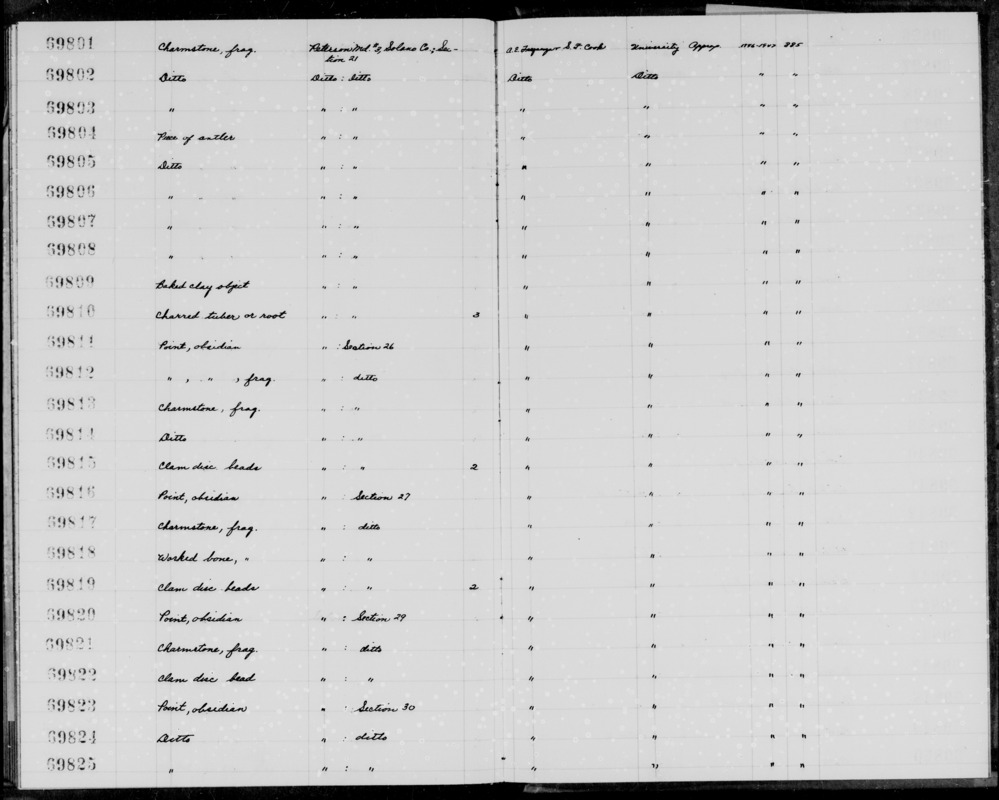 69801 Charmstone, frag. Peterson Md #2, Solano Co.; Sec- S. F. Cook University Approp. 1946-1947 885
tion 21
69802 Ditto Ditto : ditto Ditto Ditto " "
69803 " " : " " " " "
69804 Piece of antler " : " " " " "
69805 Ditto " : " " " " "
69806 " " : " " " " "
69807 " " : " " " " "
69808 " " : " " " " "
69809 Baked clay object " : " " " " "
69810 Charred tuber or root " : " 3 " " " "
69811 Point, obsidian " : Section 26 " " " "
69812 " , " , frag. " : ditto " " " "
69813 Charmstone, frag. " : " " " " "
69814 Ditto " : " " " " "
69815 Clam disc beads " : " 2 " " " "
69816 Point, obsidian " : Section 27 " " " "
69817 Charmstone, frag. " : ditto " " " "
69818 Worked bone, " " : " " " " "
69819 Clam disc beads " : " 2 " " " "
69820 Point, obsidian " : Section 29 " " " "
69821 Charmstone, frag. " : ditto " " " "
69822 Clam disc bead " : " " " " "
69823 Point, obsidian " : Section 30 " " " "
69824 Ditto " : ditto " " " "
69825 " " : " " " " "